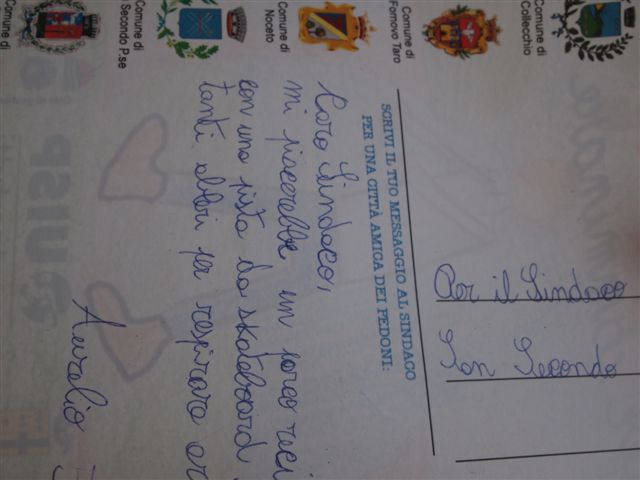 Comune di
Collecchio
Comune di
Fornovo Taro
Comune di
Noceto
Comune di
Secondo P.se
Comune di
SCRIVI IL TUO MESSAGGIO AL SINDACO
PER UNA CITTÀ AMICA DEI PEDONI:
Caro Sindaco,
mi piacerebbe un parco reci
con una pista da skateboard
tanti alberi per respirare ar
Aurelio
Per il Sindaco
San Secondo